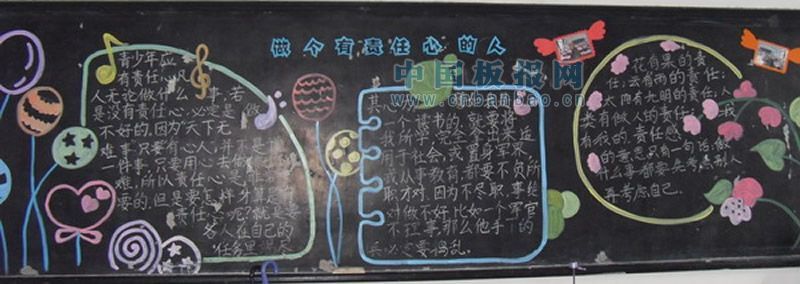 做个有责任心的人
中国板报网
www.cnbanbao.cn
青少年应
有责任心,凡
人无论做什么事,若
是没有责任心,必定是做
不好的,因为天下无
难事,只要有心人,并不是
一件事,只要用心去做
难,所以责任心是
要的.但是要怎样才算是有
责任心呢?就是要
各人在自己的
任务里竭尽
其心
个读书的,就要将
我所学,完全拿出来运
用于社会,或置身军界
或从事教育,都要不负所
职才对.因为不尽职,事经
对做不好,比如一个军官
不扛事,那么他手下的
兵必定要捣乱.
花有果的责
任;云有雨的责任;
太阳有光明的责任;人
类有做人的责任;
有我的.责任感
的意思只有一句话:做
什么事都要先考虑别人
再考虑自己.